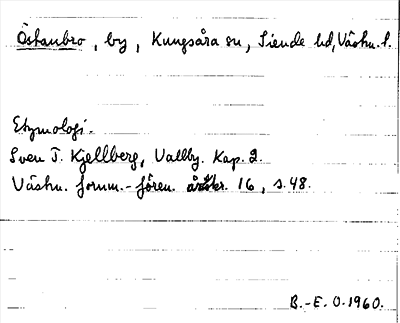 Östanbro, by, Kungsåra sn, Siende hd, Västm. l.
Etymologi.
Sven T. Kjellberg, Vallby. Kap. 2.
Västm. fornm.-fören. årsskr. 16, s. 48.
B.-E. O. 1960.